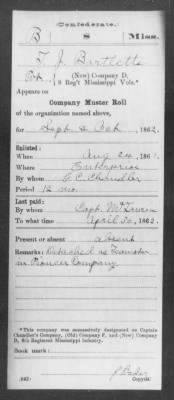 (Confederate.)
B | 8 | Miss.
T. J. Bartlett
Pvt., { (New) Company D,
8 Reg't Mississippi Vols.*
Appears on
Company Muster Roll
of the organization named above,
for Sept & Oct, 1862.
Enlisted:
When Aug 24, 186
Where Enterprise
By whom C. Chandler
Period 12 mo.
Last paid:
By whom Capt.
To what time April 30, 1862.
Present or absent absent
Remarks: Detached as Teamster
in Pioneer Company
*This company was successively designated as Captain
Chandler's Company, (Old) Company F, and (New) Company
D, 8th Regiment Mississippi Infantry.
Book mark:
(642)
Copyist.